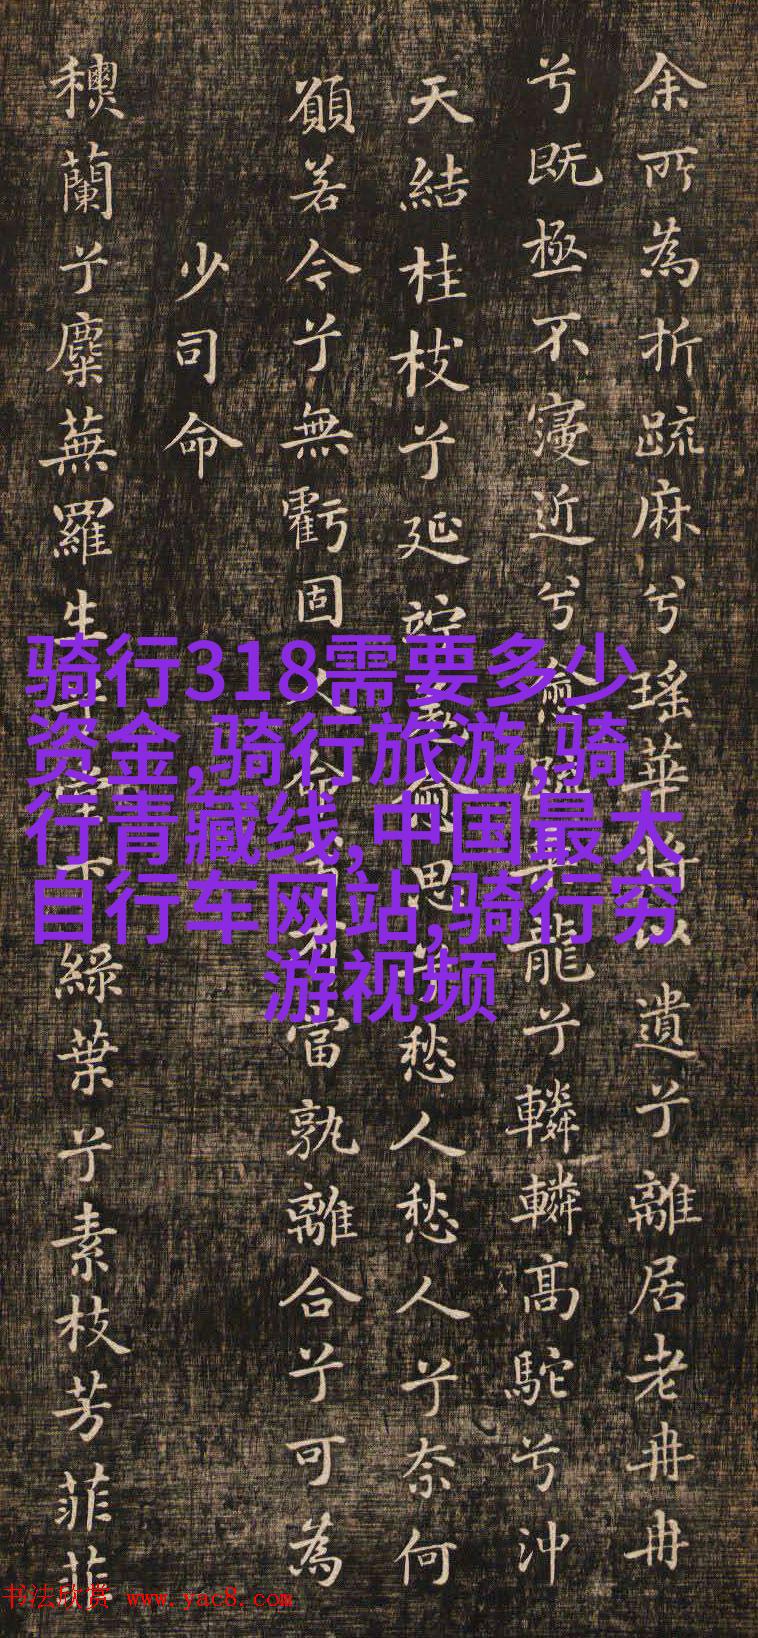 余所為折疏麻兮瑶華将以遺兮離居老冉冉
兮既極不寖近兮愈疏龍兮轔轔高駝兮沖
天結桂枝兮延竚羌愈思兮愁人愁人兮奈何
願若今兮無虧固人命兮有當孰離合兮可為
少司命
蘭兮麋蕪羅生兮堂下緑葉兮素枝芳菲菲
骑行318需要多少
资金,骑行旅游,骑
行青藏线,中国最大
自行车网站,骑行穷
游视频
书法欣赏 www.yac8.com